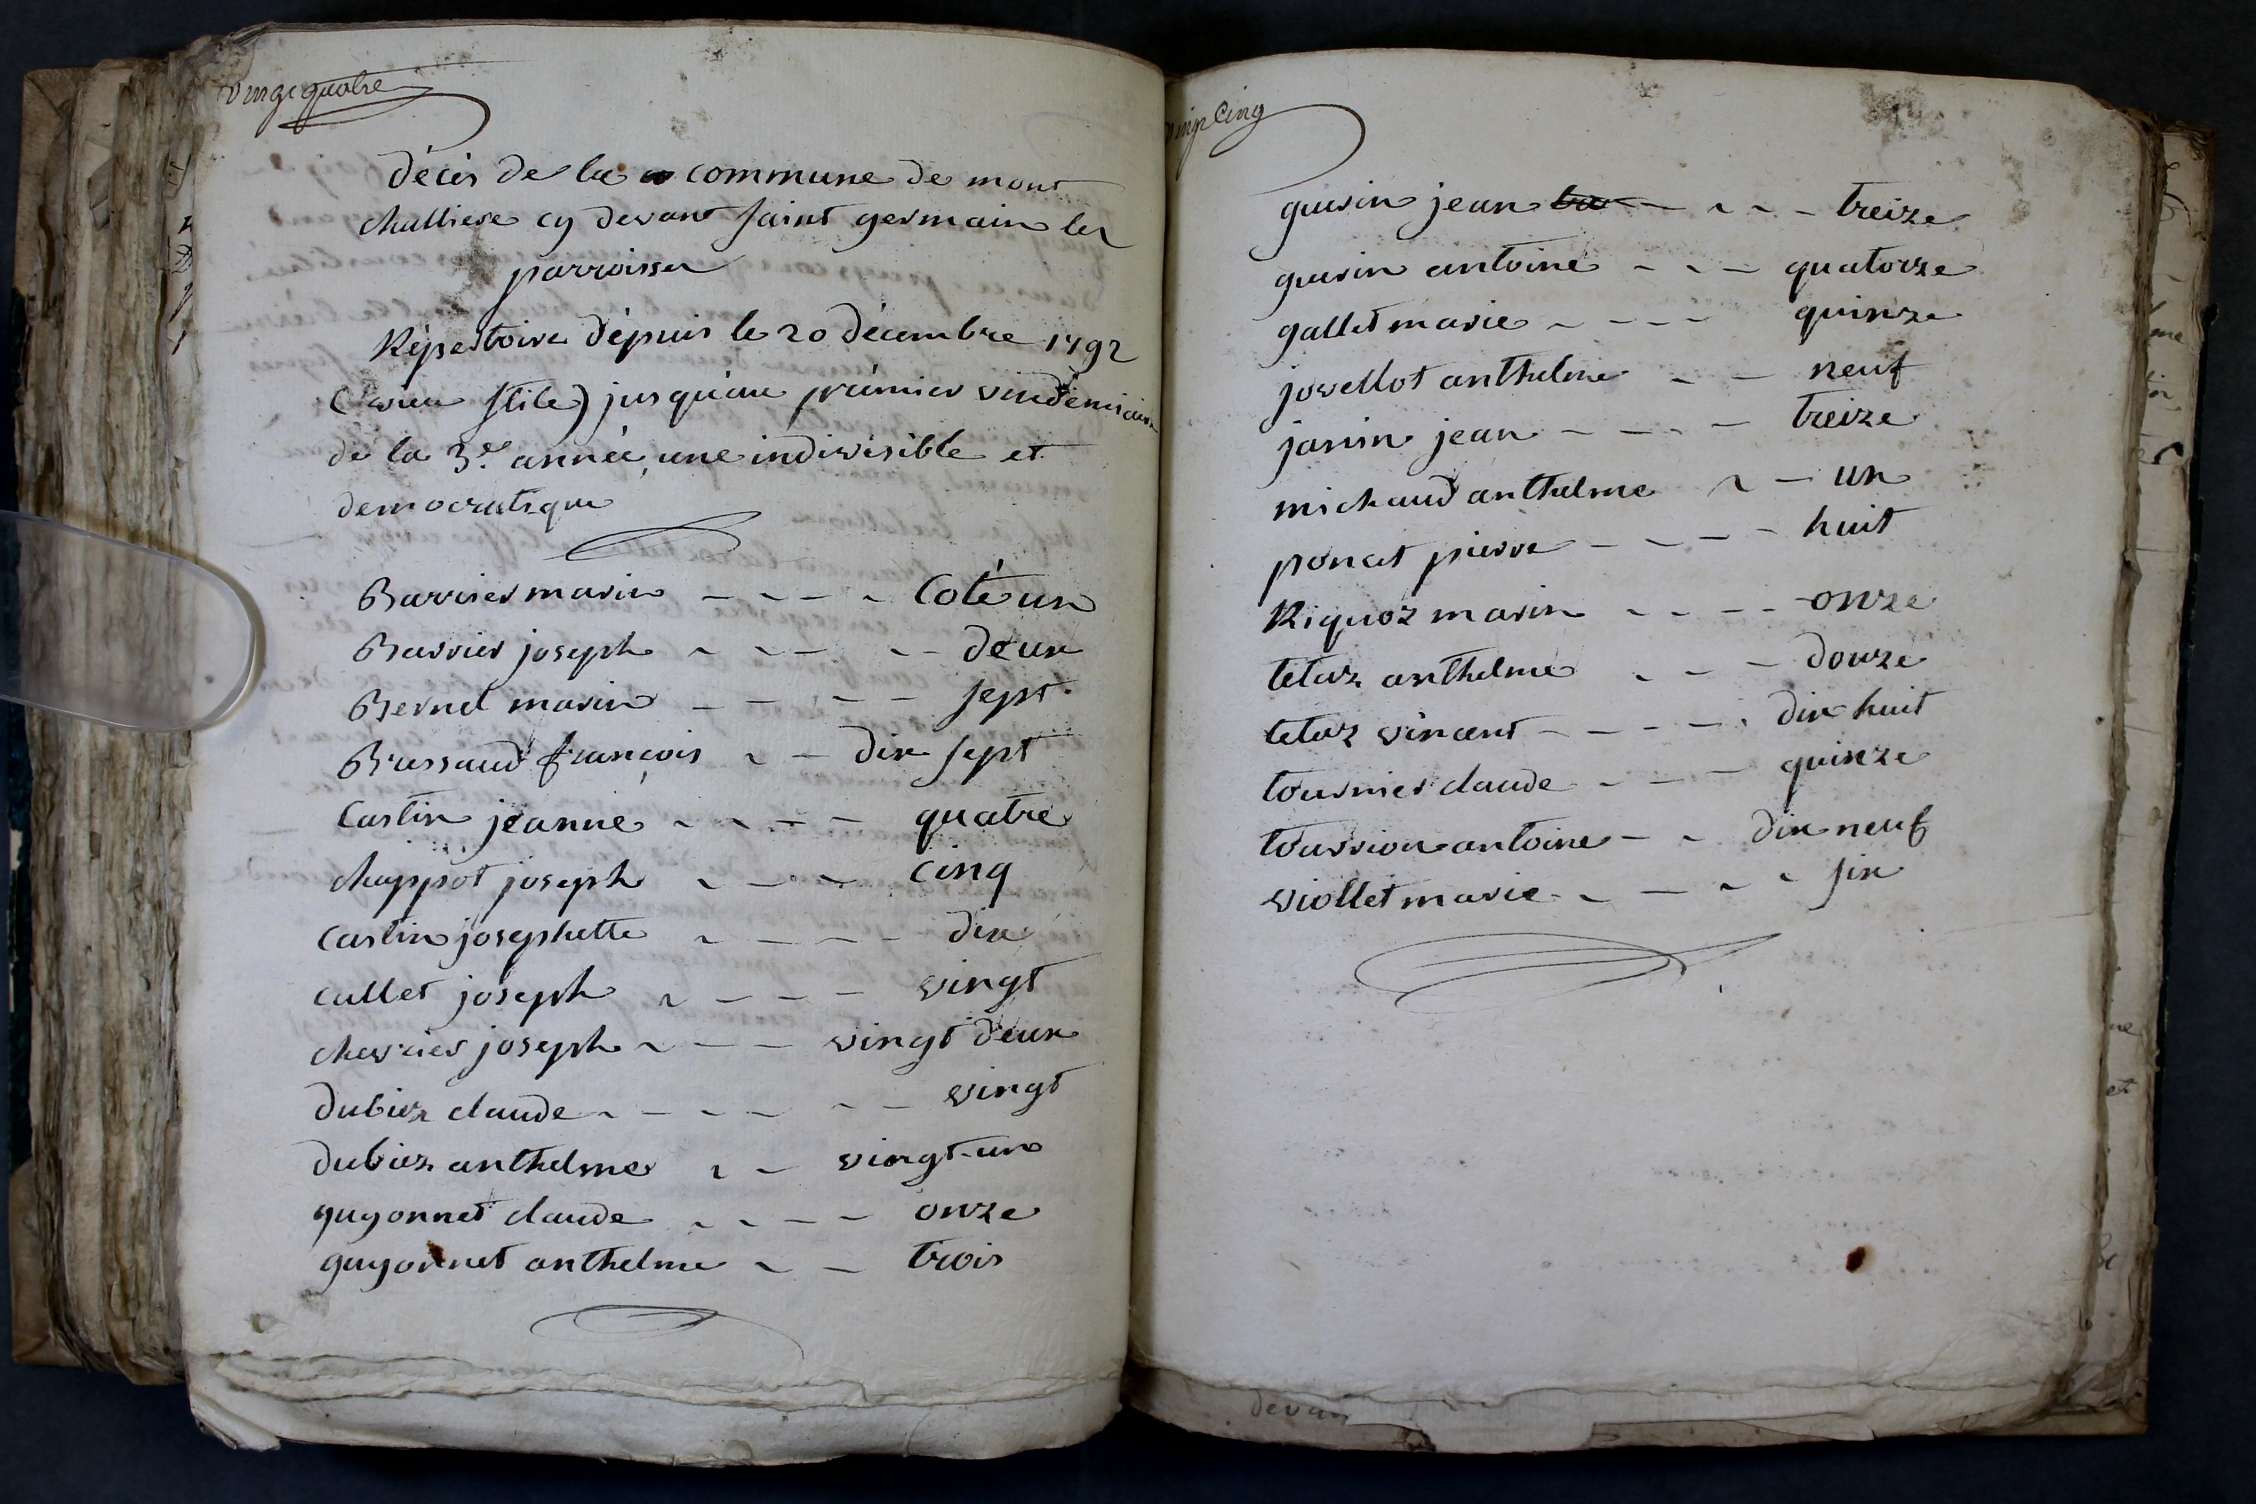 vingt quatre
décès de la commune de mont
challiere cy devant saint germain les
parroisses
Répertoire dépuis le 20 décembre 1792
(vieu stile) jusqu'au prémier vendémiaire
de la 3e. année, une indivisible et
democratique
Barrier marin - - - - Coté un
Barrier joseph - - - - - deux
Bernel marin - - - - sept
Bressaud françois - - dix sept
Castin jeanne - - - - quatre
chappot joseph - - - - cinq
Castin josephette - - - - dix
cullet joseph - - - - vingt
chevrier joseph - - - - vingt deux
dubiez claude - - - - - - vingt
dubiez anthelme - - vingt-un
guyonnet claude - - - - onze
guyonnet anthelme - - trois
vingt Cinq
guerin jean - - - - treize
guerin antoine - - - quatorze
gallet marie - - - - quinze
jovellot anthelme - - neuf
janin jean - - - - treize
michaud anthelme - - un
poncet pierre - - - - huit
Riquoz marin - - - - onze
tetaz anthelme - - - douze
tetaz vincent - - - - dix huit
tournier claude - - - quinze
toussiou antoine - - dix neuf
viollet marie - - - - six
devan